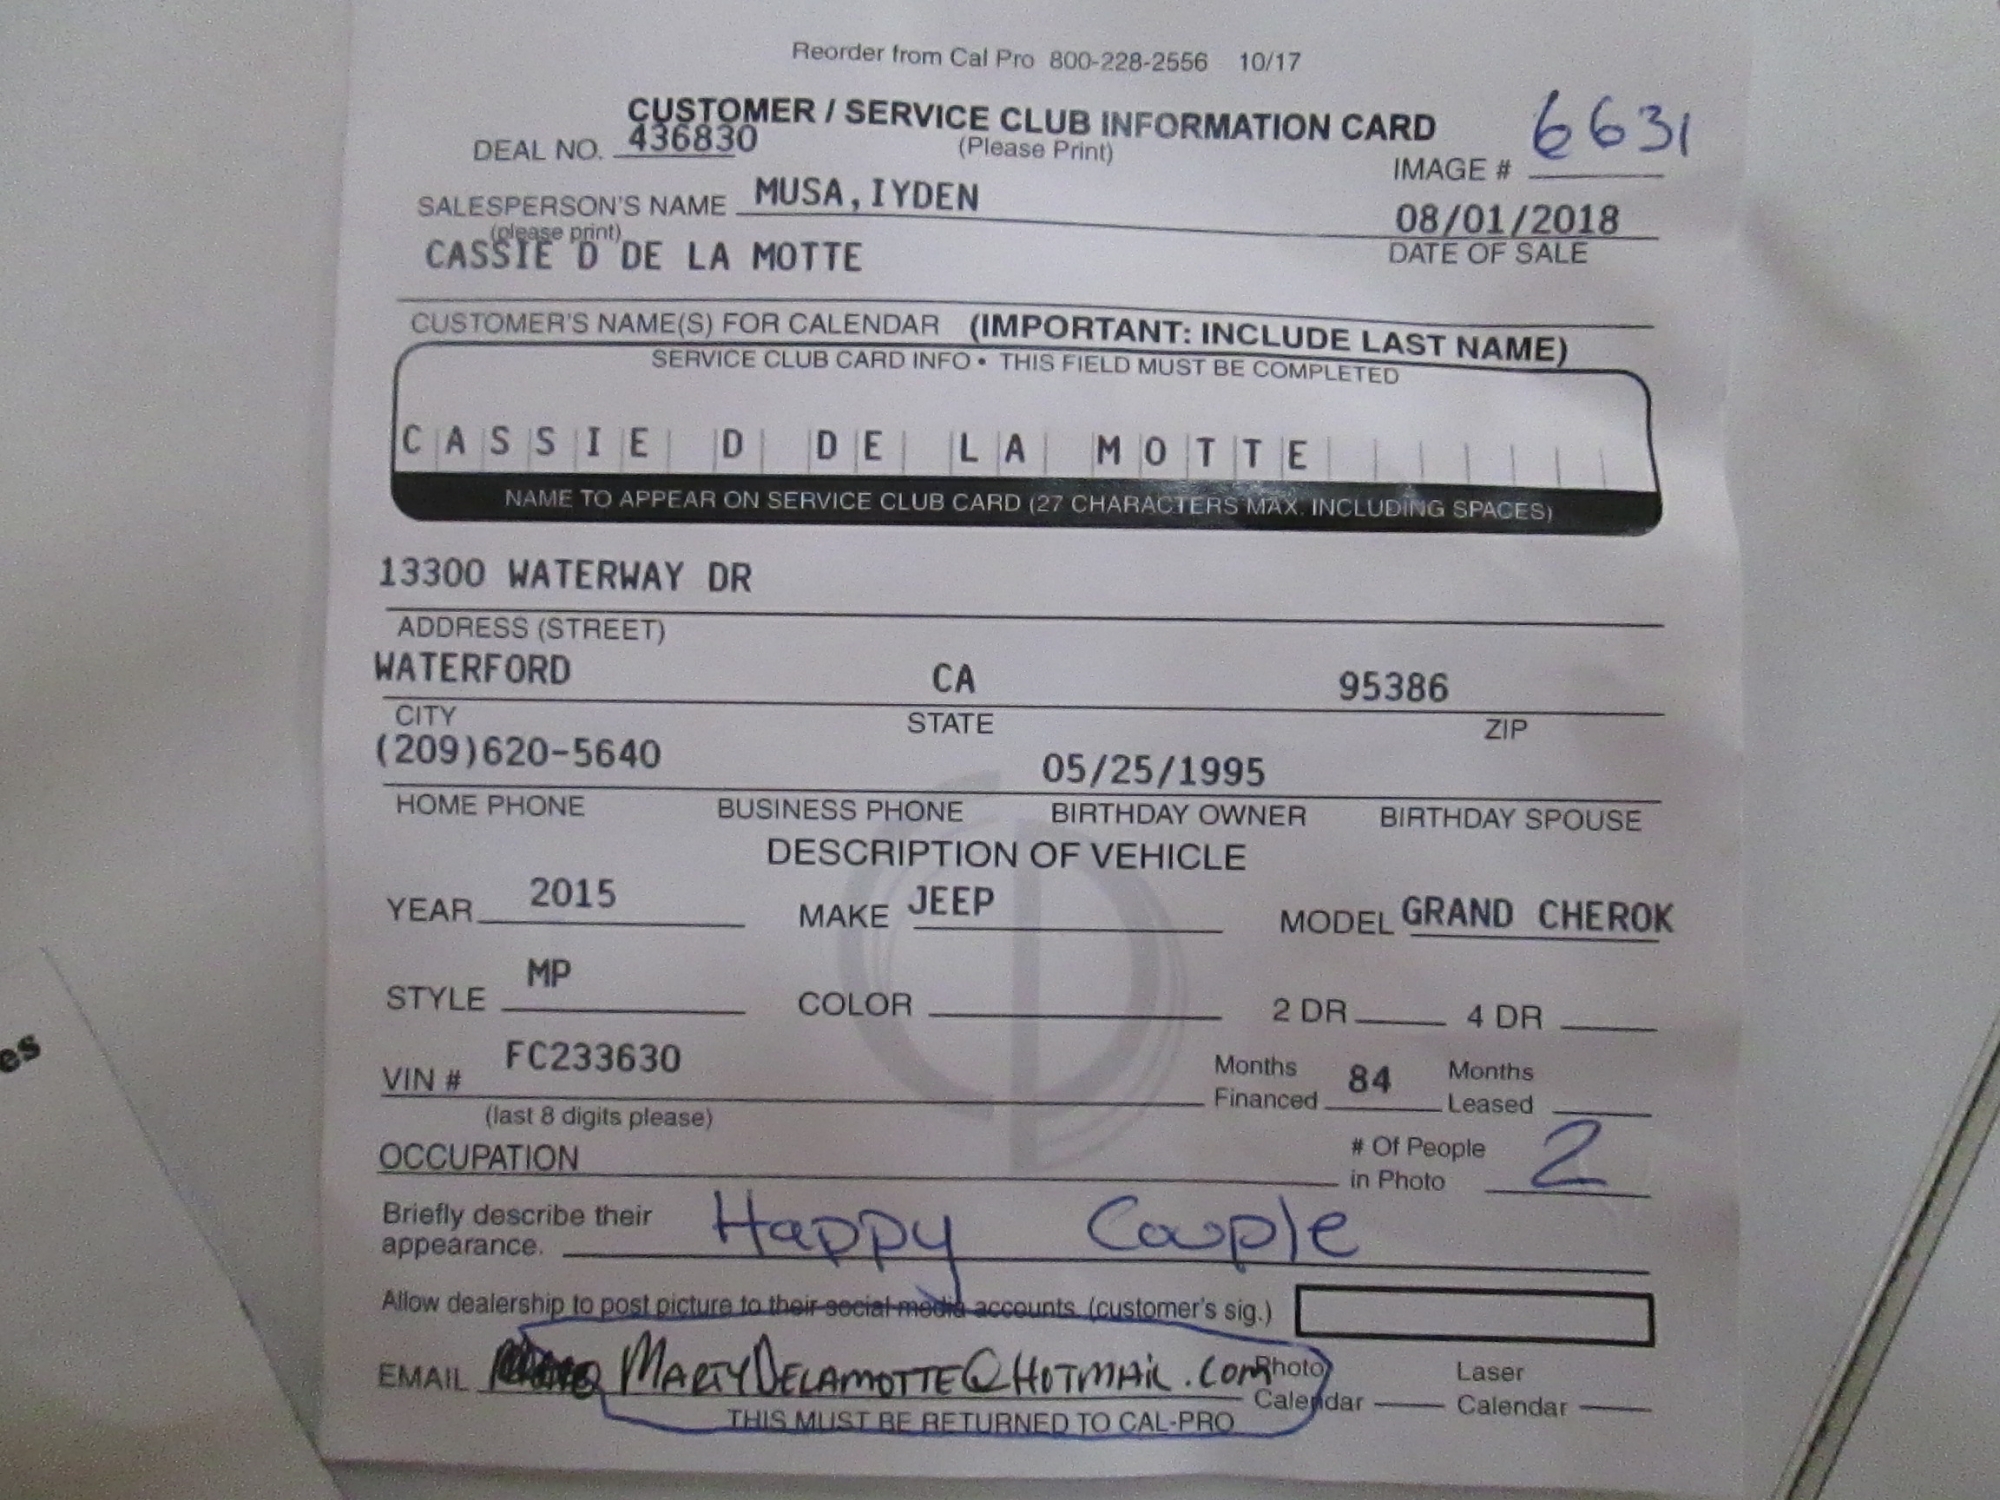 Reorder from Cal Pro 800-228-2556 10/17
CUSTOMER / SERVICE CLUB INFORMATION CARD
(Please Print)
DEAL NO. 436830
IMAGE # 6631
SALESPERSON'S NAME MUSA, IYDEN
(please print)
08/01/2018
DATE OF SALE
CASSIE D DE LA MOTTE
CUSTOMER'S NAME(S) FOR CALENDAR (IMPORTANT: INCLUDE LAST NAME)
SERVICE CLUB CARD INFO • THIS FIELD MUST BE COMPLETED
CASSIE D DE LA MOTTE
NAME TO APPEAR ON SERVICE CLUB CARD (27 CHARACTERS MAX. INCLUDING SPACES)
13300 WATERWAY DR
ADDRESS (STREET)
WATERFORD CA 95386
CITY STATE ZIP
(209)620-5640 05/25/1995
HOME PHONE BUSINESS PHONE BIRTHDAY OWNER BIRTHDAY SPOUSE
DESCRIPTION OF VEHICLE
YEAR 2015 MAKE JEEP MODEL GRAND CHEROK
STYLE MP COLOR 2 DR 4 DR
VIN # FC233630
(last 8 digits please)
Months Financed 84 Months Leased
OCCUPATION
# Of People in Photo 2
Briefly describe their appearance. Happy Couple
Allow dealership to post picture to their social media accounts (customer's sig.)
EMAIL MARTYDELAMOTTE@HOTMAIL.COM
Photo Calendar Laser Calendar
THIS MUST BE RETURNED TO CAL-PRO
es